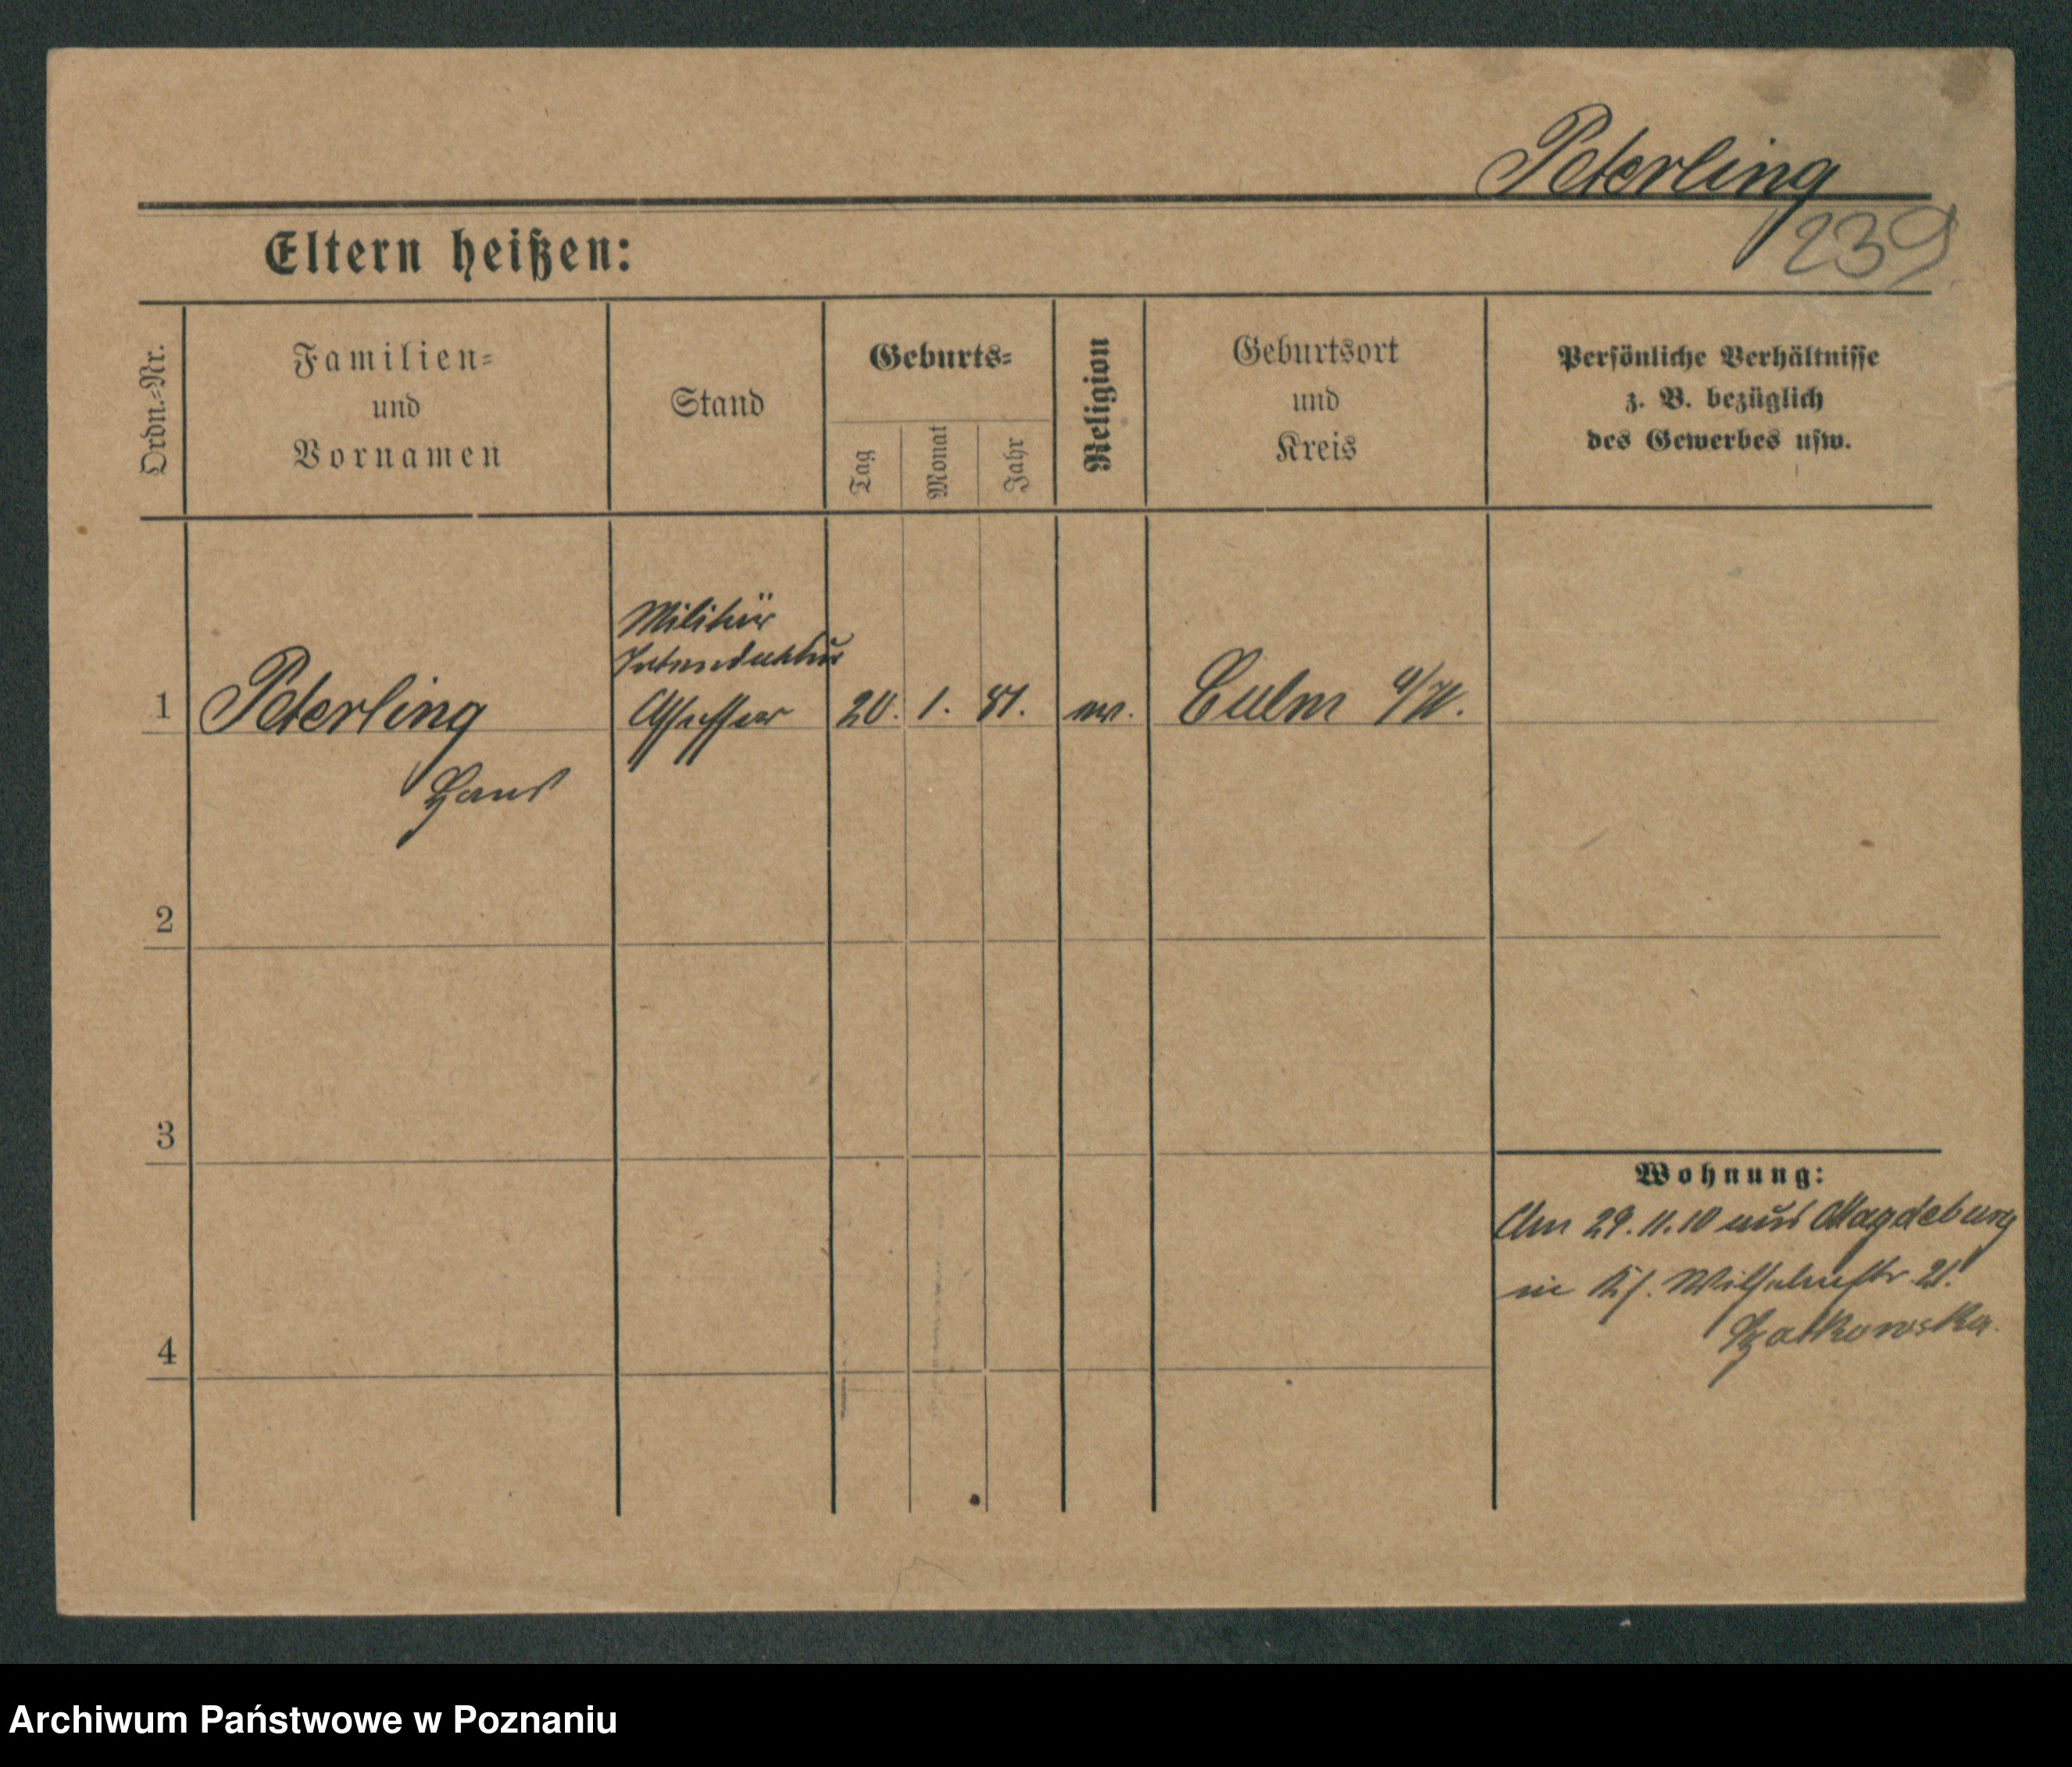 Peterling
239
Eltern heißen:
Ordn.-Nr.
Familien-
und
Vornamen
Stand
Geburts-
Tag
Monat
Jahr
Religion
Geburtsort
und
Kreis
Persönliche Verhältnisse
z. B. bezüglich
des Gewerbes usw.
Militär
Intendantur
1 Peterling Assessor 20. 1. 81. ev. Culm a/W.
Hans
2
3
Wohnung:
Am 29.11.10 aus Magdeburg
in Wilhelmstr. 21.
4
Archiwum Państwowe w Poznaniu